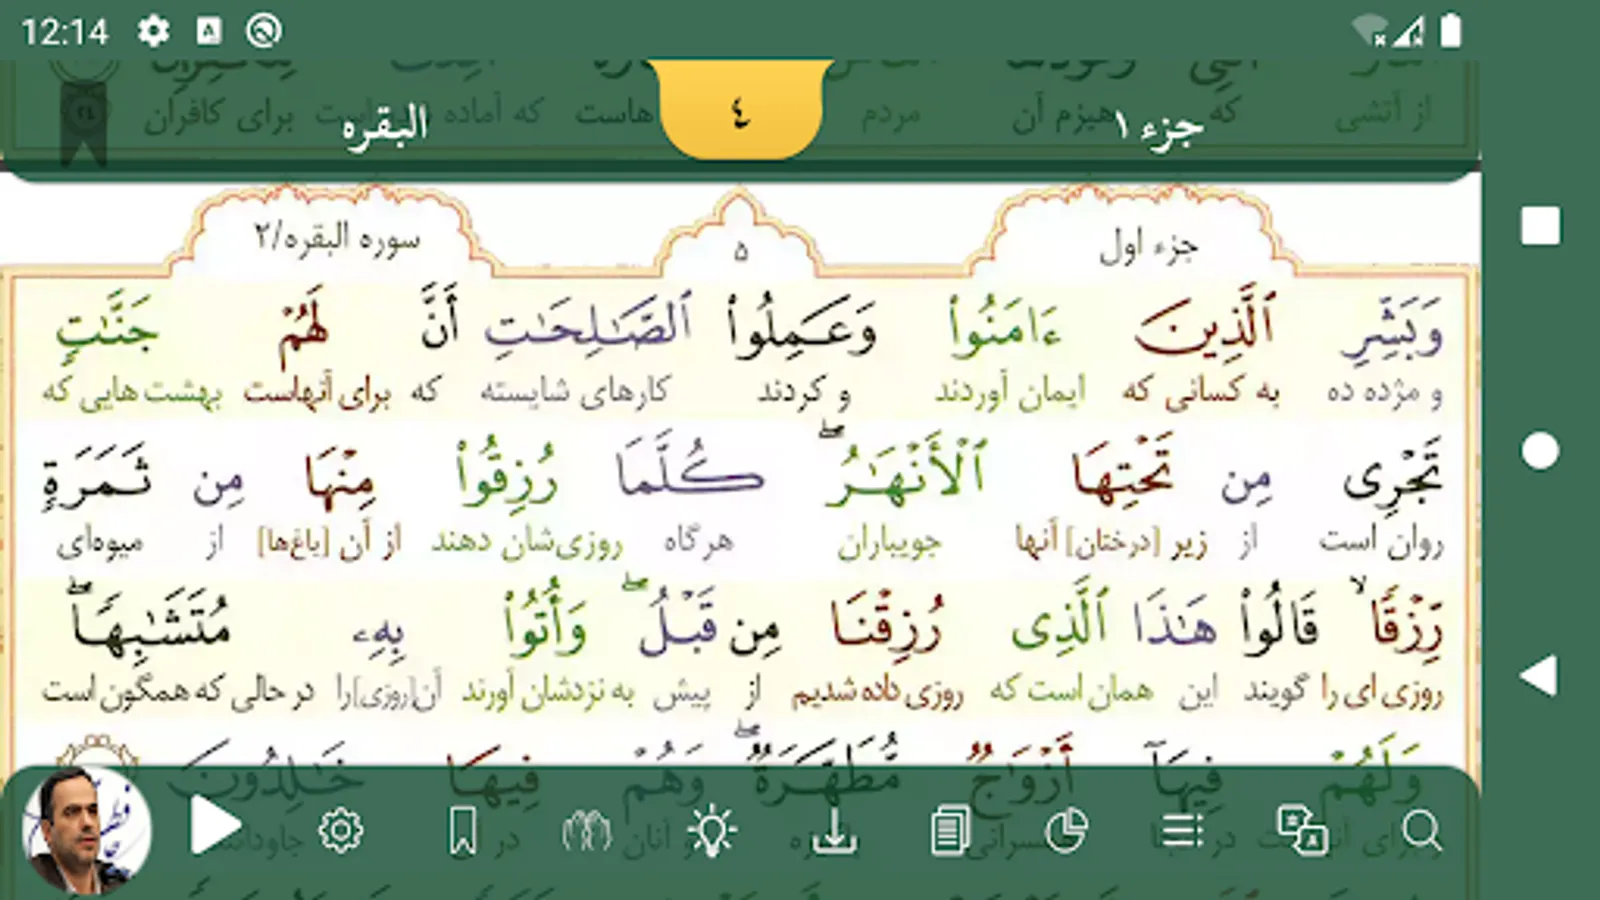 12:14
از آتشی که هیزم آن مردم هاست که آماده است برای کافران
جزء ۱ ٤ البقره
جزء اول ۵ سوره البقره/۲
وَبَشِّرِ ٱلَّذِينَ ءَامَنُوا۟ وَعَمِلُوا۟ ٱلصَّـٰلِحَـٰتِ أَنَّ لَهُمْ جَنَّـٰتٍ
و مژده ده به کسانی که ایمان آوردند و کردند کارهای شایسته که برای آنهاست بهشت هایی که
تَجْرِى مِن تَحْتِهَا ٱلْأَنْهَـٰرُ ۖ كُلَّمَا رُزِقُوا۟ مِنْهَا مِن ثَمَرَةٍ
روان است از زیر [درختان] آنها جویباران هرگاه روزی‌شان دهند از آن [باغ‌ها] از میوه‌ای
رِّزْقًا ۙ قَالُوا۟ هَـٰذَا ٱلَّذِى رُزِقْنَا مِن قَبْلُ ۖ وَأُتُوا۟ بِهِۦ مُتَشَـٰبِهًا ۖ
روزی ای را گویند این همان است که روزی داده شدیم از پیش به نزدشان آورند آن[روزی]را در حالی که همگون است
وَلَهُمْ فِيهَآ أَزْوَٰجٌ مُّطَهَّرَةٌ ۖ وَهُمْ فِيهَا خَـٰلِدُونَ